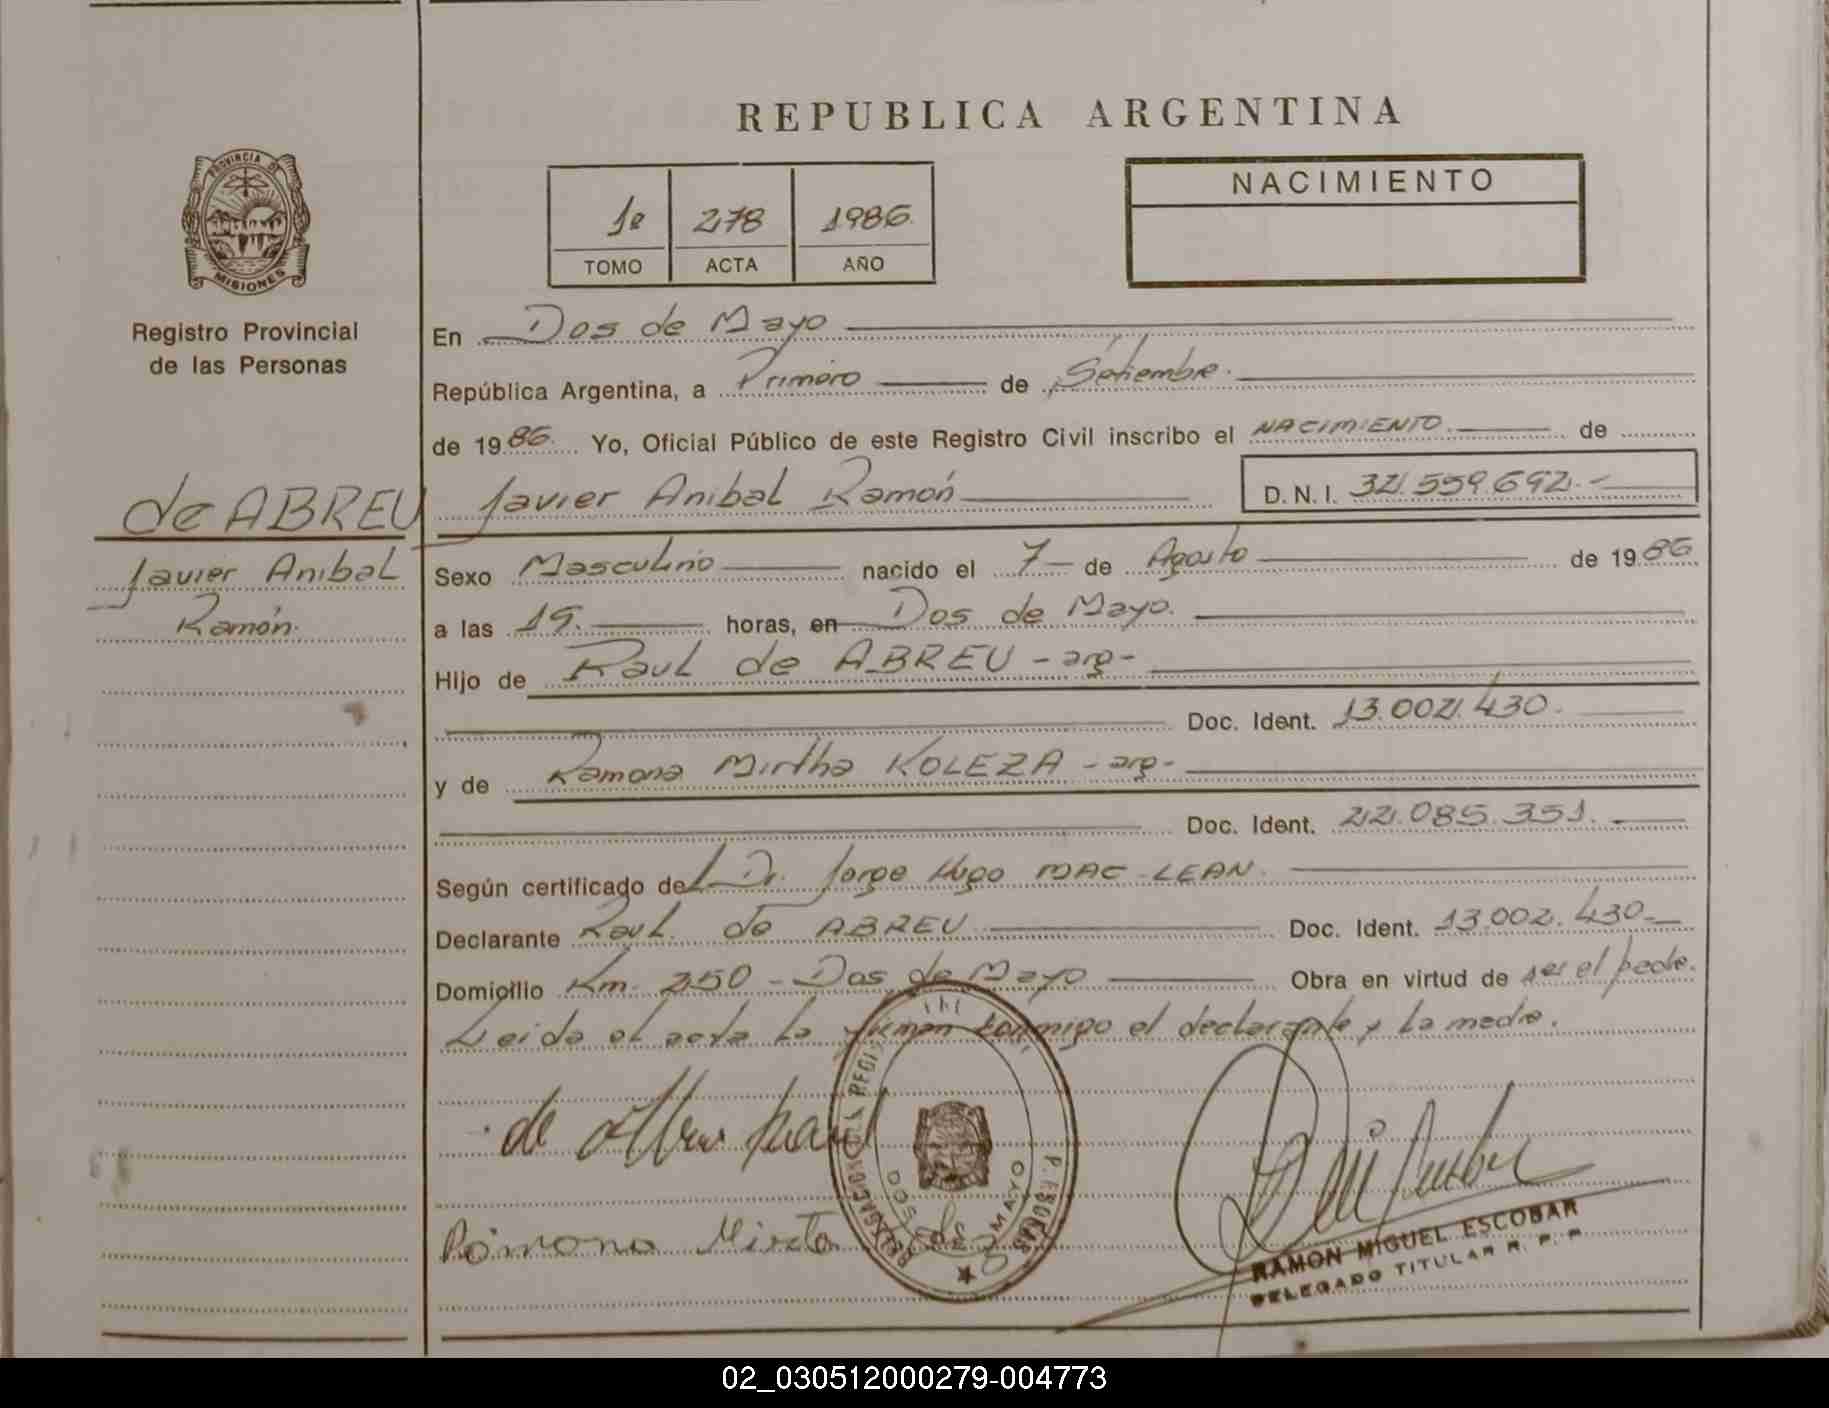 REPUBLICA ARGENTINA
PROVINCIA DE
MISIONES
Registro Provincial
de las Personas
1º 278 1986
TOMO ACTA AÑO
NACIMIENTO
En Dos de Mayo
República Argentina, a Primero de Setiembre
de 1986. Yo, Oficial Público de este Registro Civil inscribo el NACIMIENTO de
de ABREU
Javier Anibal
Ramón.
Javier Anibal Ramón D.N.I. 32.559.692.-
Sexo Masculino nacido el 7 de Agosto de 1986
a las 19. horas, en Dos de Mayo.
Hijo de Raul de ABREU - arg -
Doc. Ident. 13.002.430.
y de Ramona Mirtha KOLEZA - arg -
Doc. Ident. 22.085.351.
Según certificado del Dr. Jorge Hugo MAC LEAN.
Declarante Raul de ABREU Doc. Ident. 13.002.430.
Domicilio Km. 250 - Dos de Mayo Obra en virtud de ser el padre.
Leida el acta la firman conmigo el declarante y la madre.
de Abreu Raul
Ramona Mirta
DOS DE MAYO
RAMON MIGUEL ESCOBAR
DELEGADO TITULAR R. P. P.
02_030512000279-004773